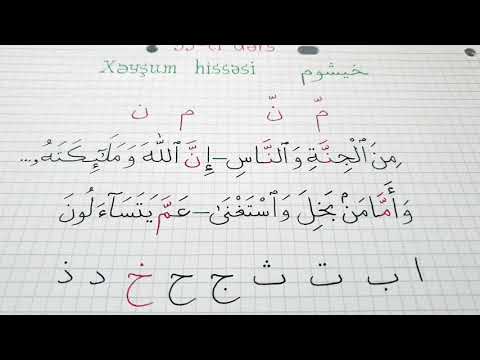 33-cü dərs
Xəyşum hissəsi خيشوم
مّ نّ م ن
مِنَ ٱلْجِنَّةِ وَٱلنَّاسِ – إِنَّ ٱللَّهَ وَمَلَٰٓئِكَتَهُۥ...
وَأَمَّا مَنۢ بَخِلَ وَٱسْتَغْنَىٰ – عَمَّ يَتَسَآءَلُونَ
ا ب ت ث ج ح خ د ذ